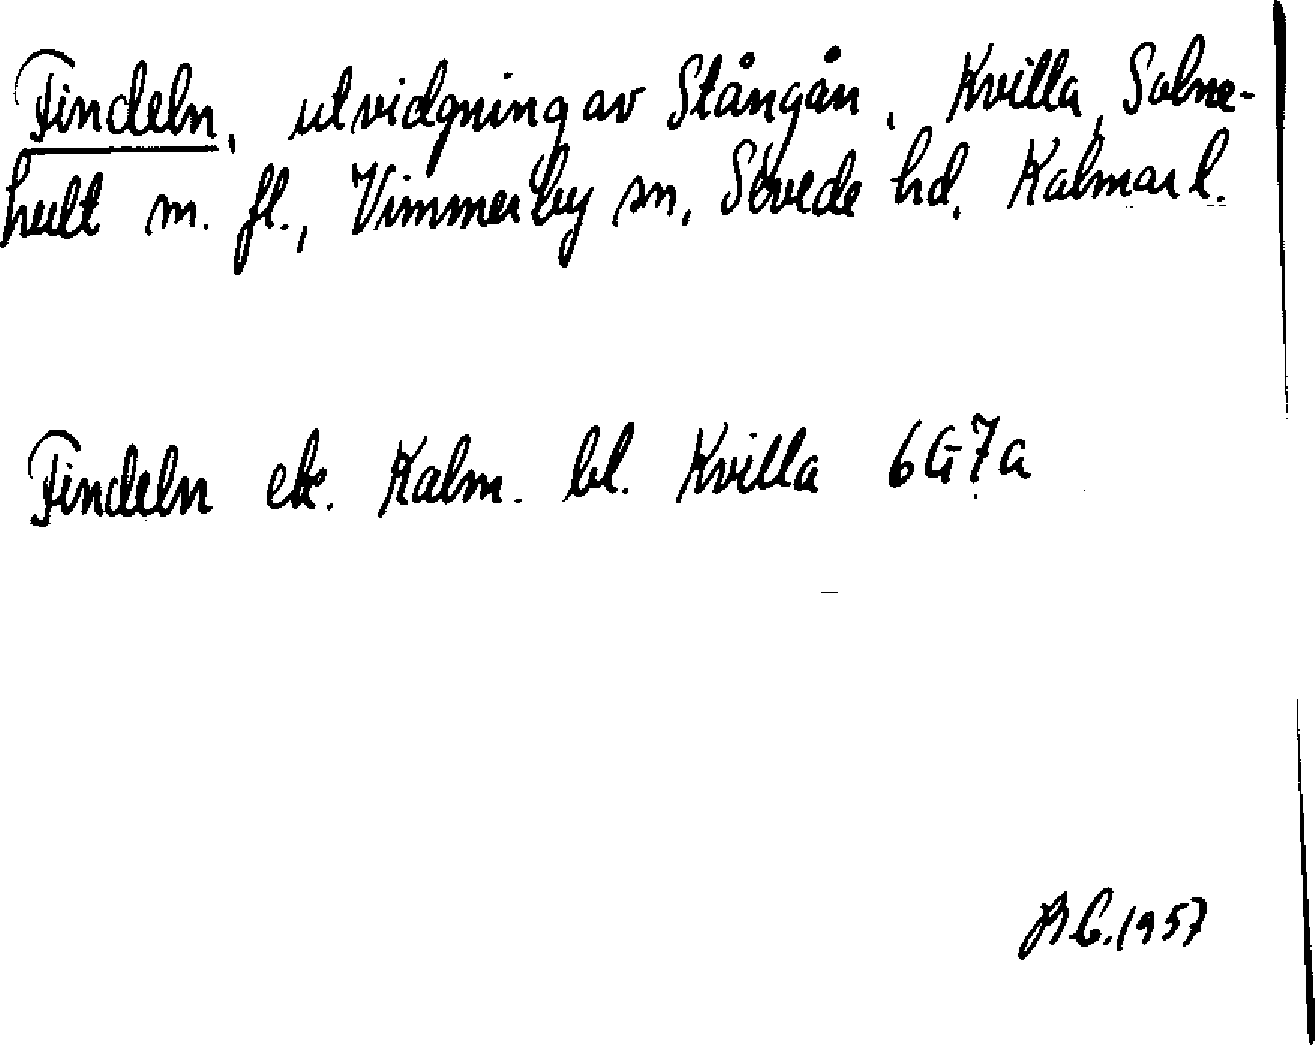 Findeln, utvidgning av Stångån, Kvilla, Salne-
hult m. fl., Vimmerby sn, Sevede hd, Kalmar l.
Findeln ek. Kalm. bl. Kvilla 6G7a
B.G. 1957